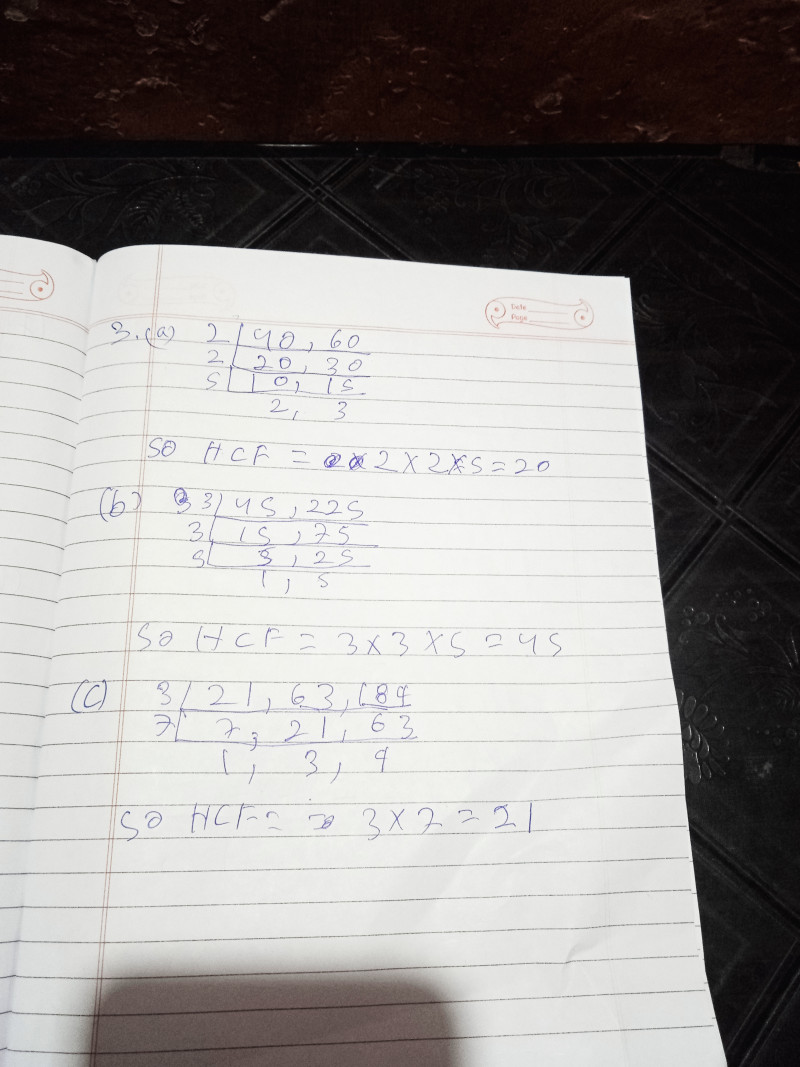 Date
Page
3. (a) 2 | 40, 60
2 | 20, 30
5 | 10, 15
2, 3
So HCF = 2 x 2 x 5 = 20
(b) 3 | 45, 225
3 | 15, 75
5 | 5, 25
1, 5
So HCF = 3 x 3 x 5 = 45
(c) 3 | 21, 63, 189
7 | 7, 21, 63
1, 3, 9
So HCF = 3 x 7 = 21